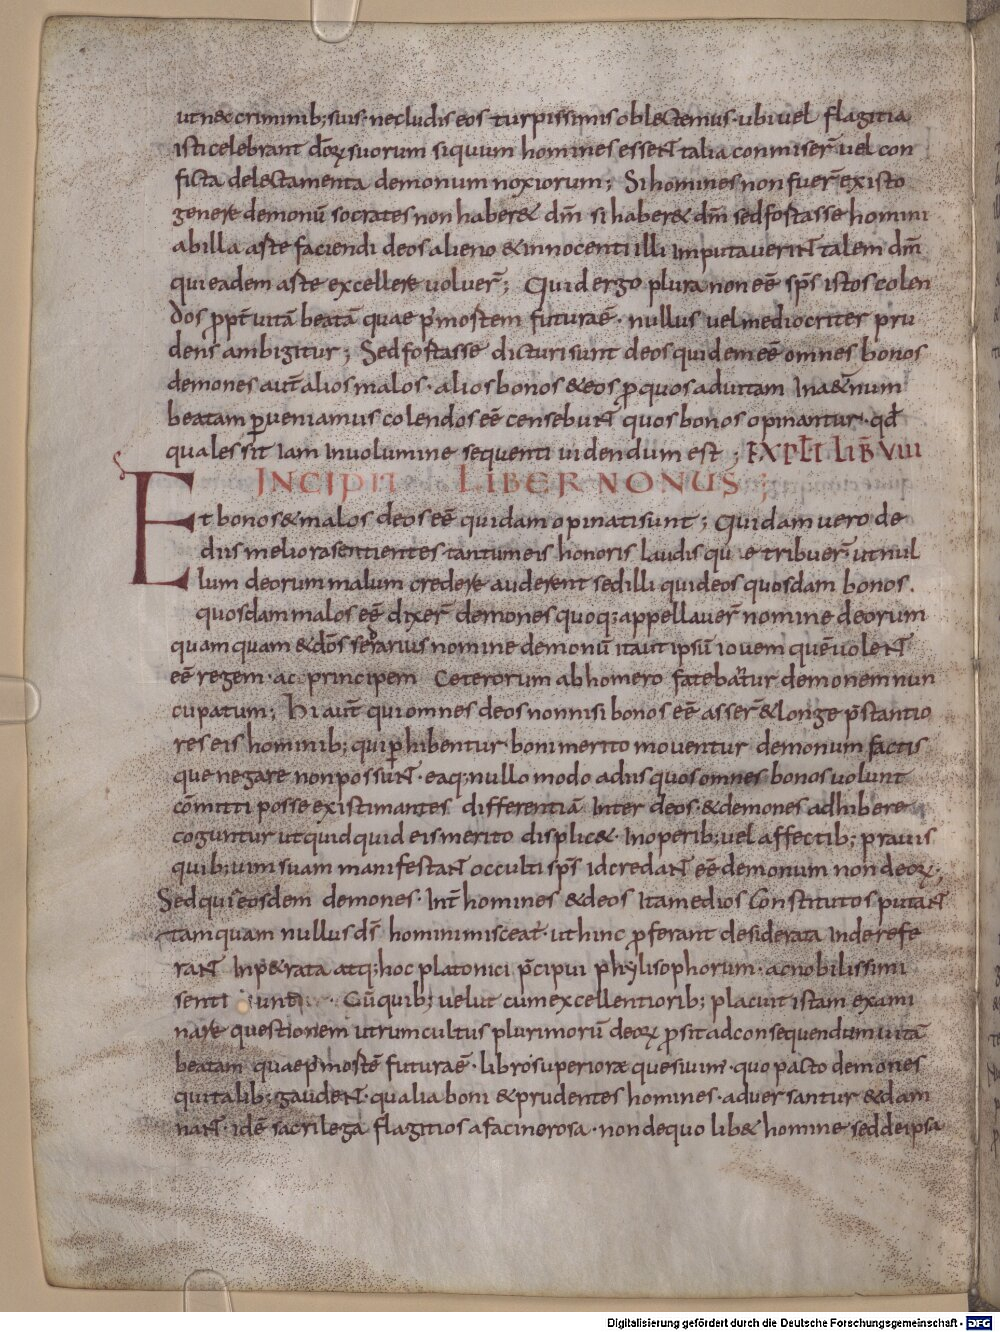 utnex criminib; suis· necludis eos turpissimis oblectemus· ubi uel flagitia
isti celebrant dōꝝ suorum siquum homines essent talia conmiser̄ uel con
ficta delectamenta demonum noxiorum; Si homines non fuer̄ ex isto
genere demonū socrates non haber& dm̄ si haber& dm̄ sed fortasse homini
ab illa arte faciendi deos alieno & innocenti illi imputauerint talem dm̄
qui eadem arte excellere uoluer̄; Quid ergo plura non eē sp̄s istos colen
dos ꝓpt̄ uitā beatā quae p̄ mortem futura ē· nullus uel mediocriter pru
dens ambigitur; Sed fortasse dicturi sunt deos quidem eē omnes bonos
demones aut̄ alios malos· alios bonos & eos ꝓ quos ad uitam in aeternum
beatam ꝑueniamus colendos eē censebunt quos bonos opinantur· qđ
quales sit iam in uolumine sequenti uidendum est; EXPLĪT LIB̄ VIII
INCIPIT LIBER NONUS;
Et bonos & malos deos eē quidam opinati sunt; Quidam uero de
diis meliora sentientes tantum eis honoris laudisque tribuer̄ ut nul
lum deorum malum credere auderent sed illi qui deos quosdam bonos·
quosdam malos eē dixer̄ demones quoq; appellauer̄ nomine deorum
quamquam & dōs nomine demonū ita ut ipsū iouem quē uolent
eē regem· ac principem Ceterorum ab homero fatebatur demonem nun
cupatum; Hi aut̄ qui omnes deos nonnisi bonos eē asser̄ & longe p̄stantio
res eis hominib; qui ꝑhibentur boni merito mouentur demonum factis
que negare non possunt· eaq; nullo modo a diis quos omnes bonos uolunt
cōmitti posse existimantes differentiā inter deos· & demones adhibere
coguntur ut quidquid eis merito displic& in operib; uel affectib; prauis
quib; uim suam manifestant occulti sp̄s id credant eē demonum non deoꝝ;
Sed qui eosdem demones· int̄ homines & deos ita medios constitutos putant
tamquam nullus ds̄ homini misceat̄· ut hinc ꝓferant desiderata inde refe
rant inp&rata atq; hoc platonici p̄cipui phylisophorum· ac nobilissimi
senti unt· Cū quib; uelut cum excellentiorib; placuit istam exami
nare questionem utrum cultus plurimorū deoꝝ ꝓsit ad consequendam uitā
beatam quae p̄ mortē futura ē· libro superiore quesiuim̄· quo pacto demones
qui talib; gaudent· qualia boni & prudentes homines· aduersantur & dam
nant· idē sacrilega flagitiosa facinerosa· non de quo lib& homine sed de ipsa
Digitalisierung gefördert durch die Deutsche Forschungsgemeinschaft - DFG